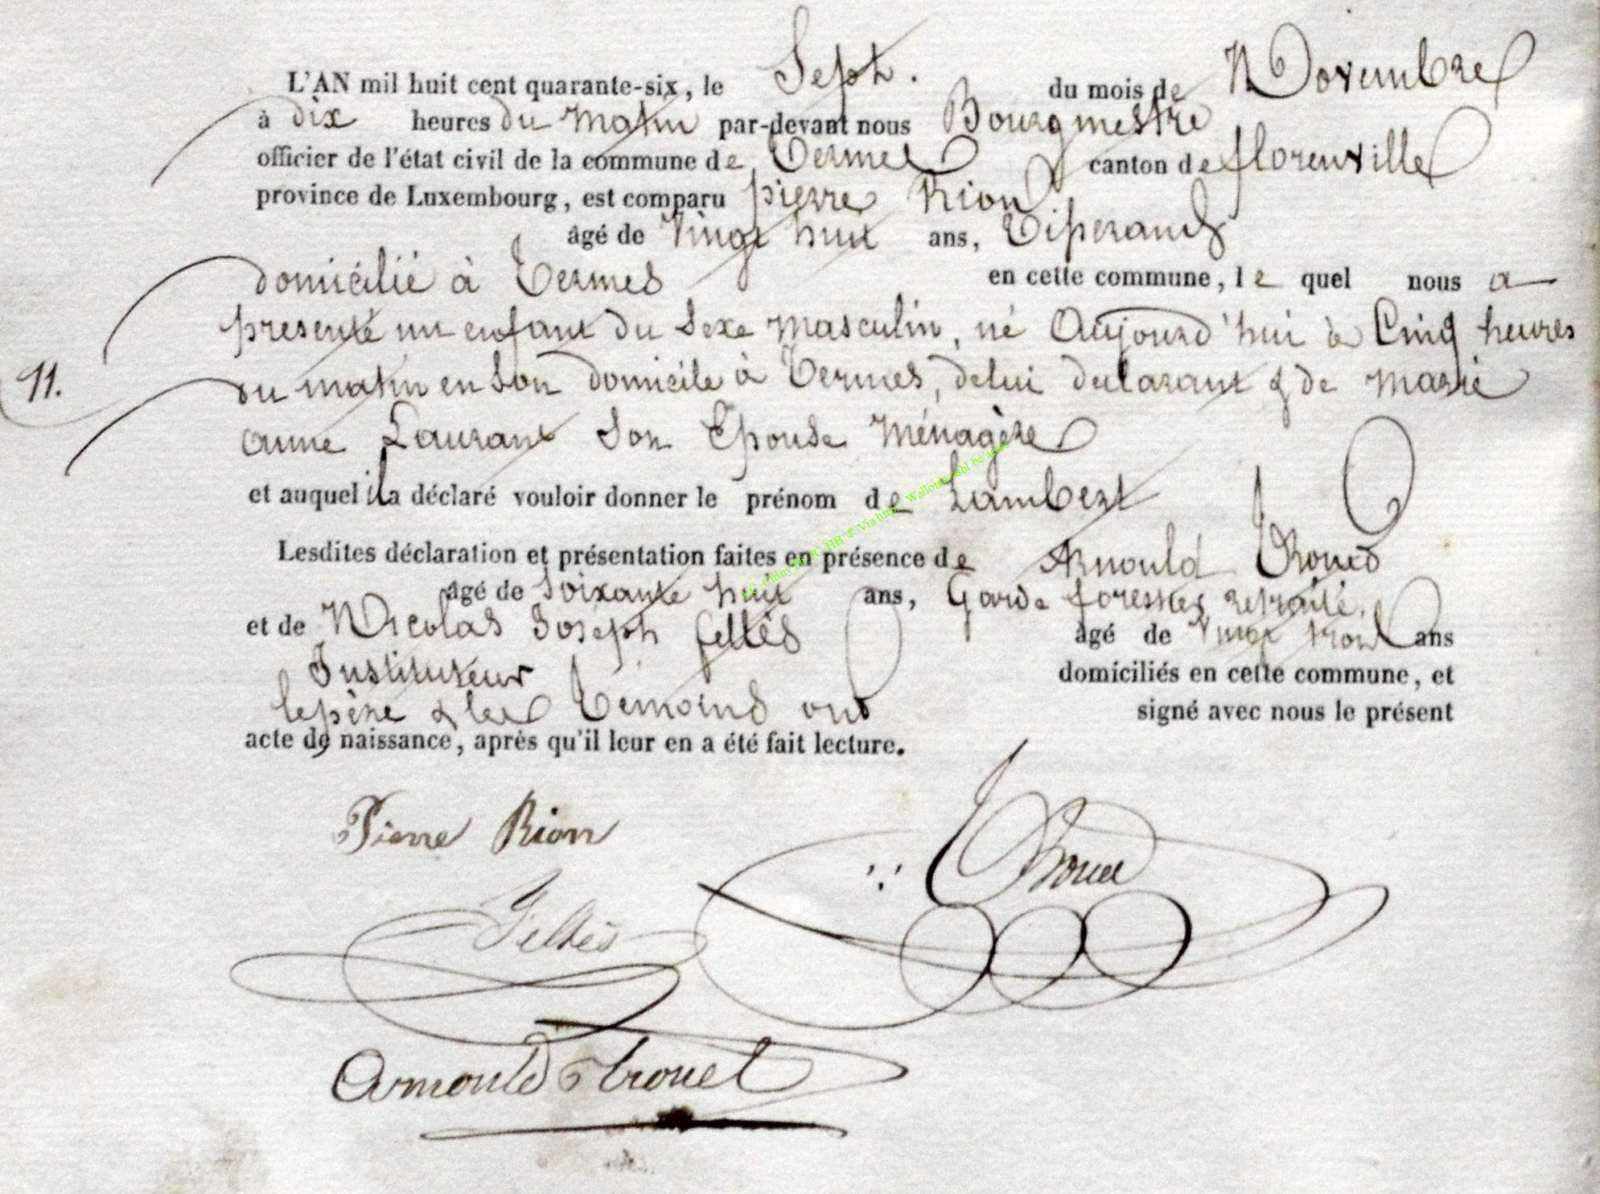 L'AN mil huit cent quarante-six, le Sept. du mois de Novembre
à dix heures du matin par-devant nous Bourgmestre
officier de l'état civil de la commune de Termes canton de florenville
province de Luxembourg, est comparu pierre Rion
âgé de vingt huit ans, Tiserand
domicilié à Termes en cette commune, le quel nous a
presenté un enfant du sexe masculin, né Aujourd'hui à Cinq heures
11. du matin en son domicile à Termes, de lui déclarant & de marie
anne Laurant son Epouse Ménagère
et auquel il a déclaré vouloir donner le prénom de Lambert
Lesdites déclaration et présentation faites en présence de Arnould Troued
âgé de soixante huit ans, Garde forestier retraité,
et de Nicolas Joseph felles âgé de vingt trois ans
Instituteur domiciliés en cette commune, et
le père & les Témoins ont signé avec nous le présent
acte de naissance, après qu'il leur en a été fait lecture.
Pierre Rion
Troued
Felles
Arnould Trouet